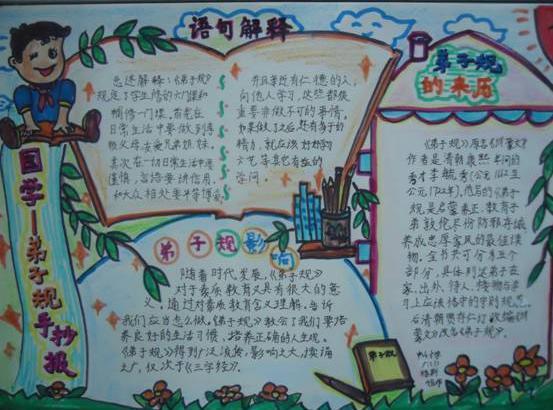 语句解释
总述解释：《弟子规》
规定了学生修的六门课和
一门辅修一门课。首先在
日常生活中要做到孝
敬父母，友爱兄弟姐妹。
其次在一切日常生活中要
谨慎，言语要讲信用。
和大众相处要平等博爱
并且亲近有仁德的人，
向他人学习，这些都是
重要非做不可的事情。
如果做了之后，还有多余的
精力，就应该好好的
学问。
弟子规影响
随着时代发展，《弟子规》
对于素质教育又具有很大的意
义，通过对素质教育含义理解，告诉
我们应当怎么做。《弟子规》教会了我们要培
养良好的生活习惯，培养正确的人生观。
《弟子规》得到广泛流传，影响之大，读诵
之广，仅次于《三字经》。
弟子规
的来历
《弟子规》原名《训蒙文》
作者是清朝康熙年间的
秀才李毓秀（公元1662至
公元1722年）。
规是启蒙养正，教育子
弟敦伦尽份防邪存诚
养成忠厚家风的最佳读
物。全书共可分为五个
部分，具体列述弟子在
家、出外、待人、接物与学
习上应该恪守的守则规范。
后清朝贾存仁修订改编《训
蒙文》改名《弟子规》。
国学—弟子规手抄报
弟子规